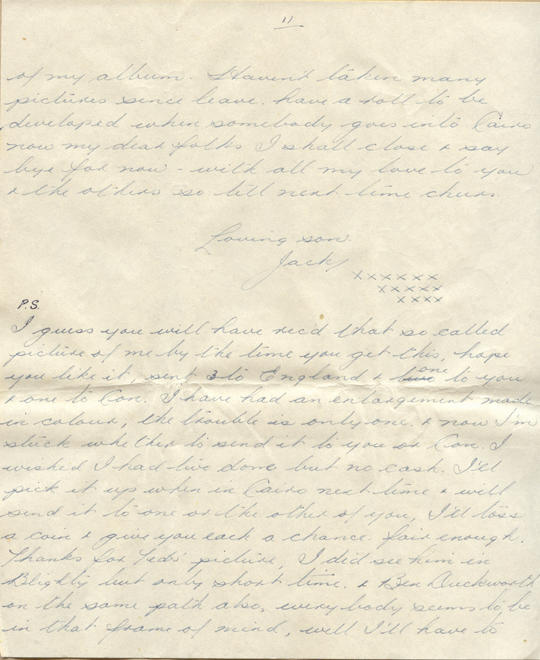 11
of my album. Haven't taken many
pictures since leave. have a roll to be
developed when somebody goes into Cairo
now my dear folks I shall close & say
bye for now - with all my love to you
& the others so till next time cheers.
Loving son.
Jack
xxxxxx
xxxxx
xxxx
P.S.
I guess you will have rec'd that so called
picture of me by the time you get this, hope
you like it, sent 3 to England & one to you
& one to Con. I have had an enlargement made
in colour, the trouble is only one. & now I'm
stuck whether to send it to you or Con. I
wished I had two done but no cash. I'll
pick it up when in Cairo next time & will
send it to one or the other of you, I'll toss
a coin & give you each a chance. fair enough.
Thanks for Teds' picture, I did see him in
Blighty but only short time. & Ben Duckworth
on the same path also, everybody seems to be
in that frame of mind, well I'll have to